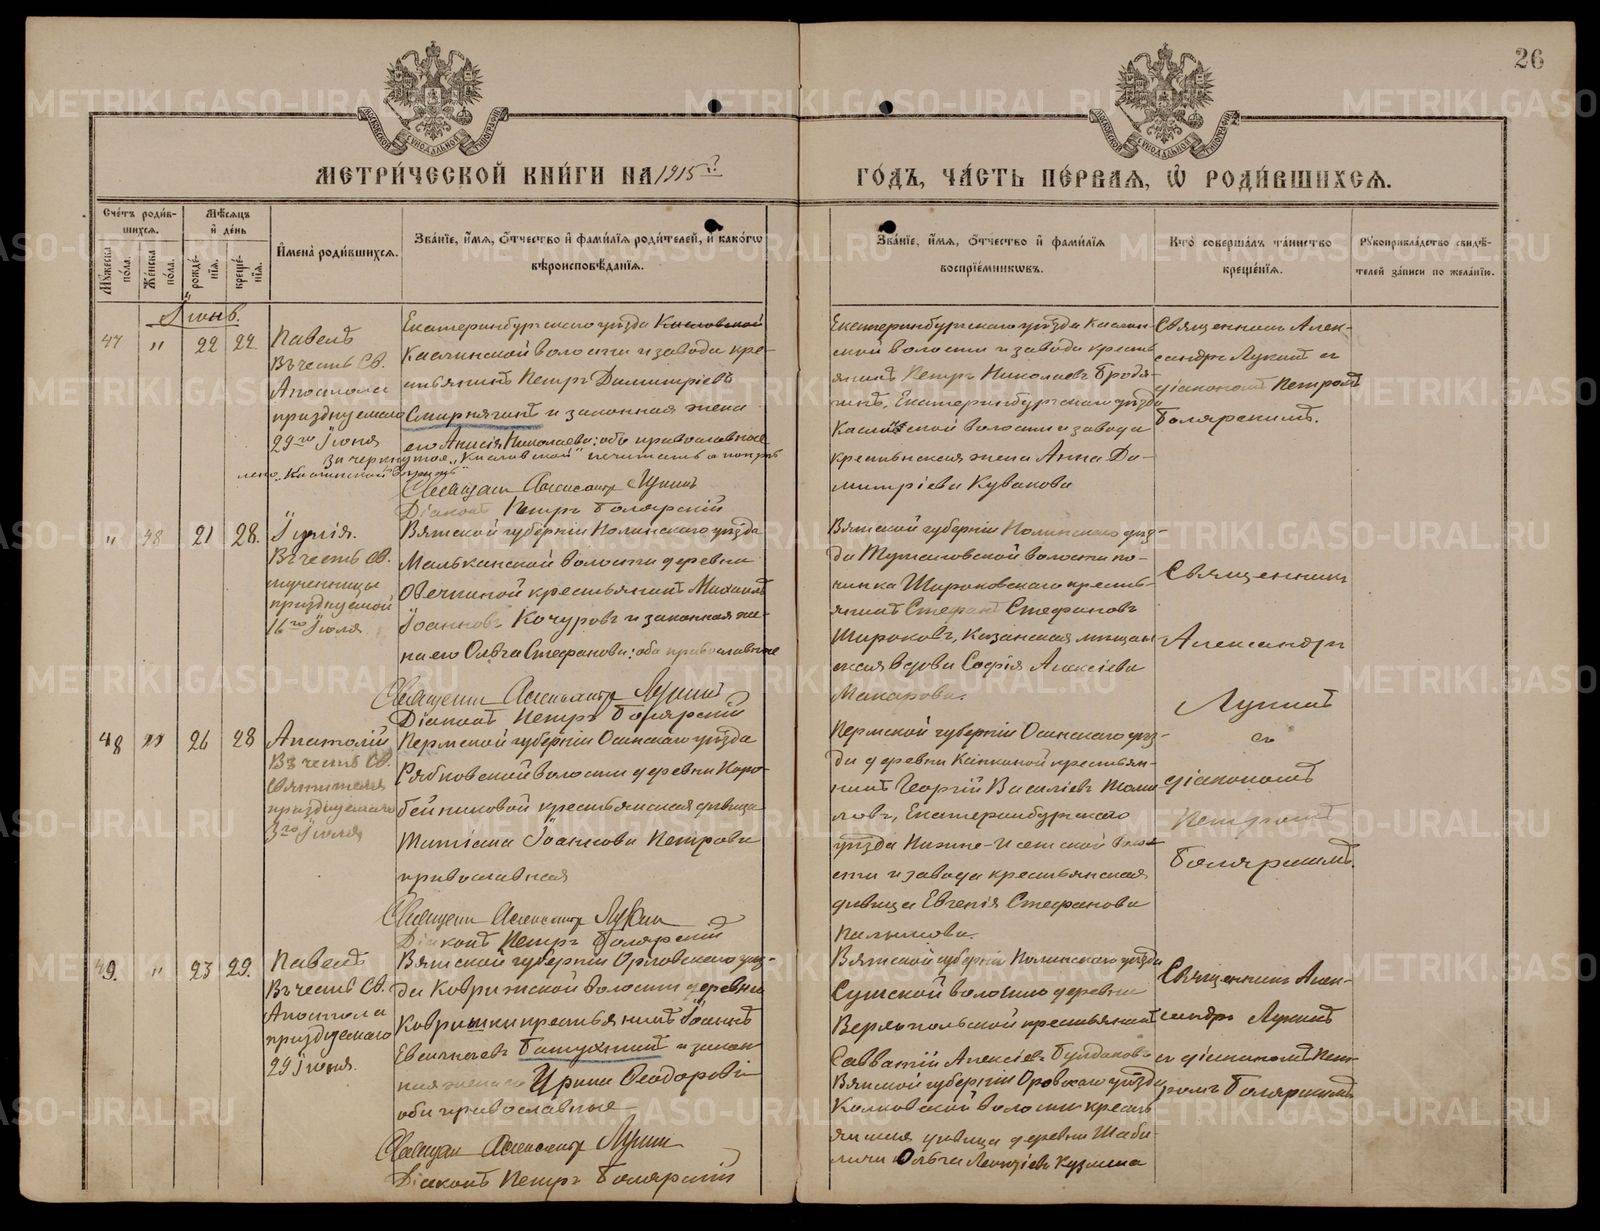 26
МОСКОВСКОЙ СѴНОДАЛЬНОЙ ТИПОГРАФІИ
МОСКОВСКОЙ СѴНОДАЛЬНОЙ ТИПОГРАФІИ
МЕТРИ́ЧЕСКОЙ КНИ́ГИ НА 1915 г.
ГО́ДЪ, ЧА́СТЬ ПЕ́РВАѦ, Ѡ РОДИ́ВШИХСѦ.
Сче́тъ роди́в-
шихся.
Мѣ́сяцъ
и де́нь
Му́жеска по́ла.
Же́нска по́ла.
рожде́-нія.
креще́-нія.
Имена̀ роди́вшихся.
Зва́ніе, и́мя, о́тчество и фами́лія роди́телей, и како́гѡ
вѣроисповѣ́данія.
Зва́ніе, и́мя, о́тчество и фами́лія
воспріе́мникѡвъ.
Кто̀ соверша́лъ та́инство
креще́нія.
Рꙋкоприкла́дство свидѣ́-
телей за́писи по жела́нію.
Іюнь.
47 " 22 22.
Павелъ
Въ честь Св.
Апостола
празднуемаго
29го Іюня
Екатеринбургскаго уѣзда Касловской
Каслинской волости и завода кре-
стьянинъ Петръ Димитріевъ
Смирнягинъ и законная жена
его Анисія Николаева; оба православные
Зачеркнутое „Касловской"
Священ. Александръ Лукинъ
Діаконъ Петръ Боляреній
Екатеринбургскаго уѣзда Каслин-
ской волости и завода кресть-
янинъ Петръ Николаевъ Бродя-
гинъ, Екатеринбургскаго уѣзда
Каслинской волости и завода
крестьянская жена Анна Ди-
митріева Куванова
Священникъ Алек-
сандръ Лукинъ съ
діакономъ Петромъ
Болярскимъ.
" 48 21 28.
Іулія.
Въ честь св.
мученицы
празднуемой
16го Іюля
Вятской губерніи Нолинскаго уѣзда
Мальканской волости деревни
Овечкиной крестьянинъ Михаилъ
Іоанновъ Кочуровъ и законная же-
на его Ольга Стефанова; оба православные
Священ. Александръ Лукинъ
Діаконъ Петръ Болярскій
Вятской губерніи Нолинскаго уѣз-
да волости по-
чинка Широковскаго кресть-
янинъ Стефанъ Стефановъ
Широковъ, Казанская мѣщан-
ская вдова Софія Алексіева
Макарова.
Священникъ
Александръ
Лукинъ
съ
діакономъ
Петромъ
Болярскимъ.
48 " 26 28
Анатолій
Въ честь Св.
Святителя
празднуемаго
3го Іюля
Пермской губерніи Осинскаго уѣзда
Рябковской волости деревни Коро-
бейниковой крестьянская дѣвица
Татіана Іоаннова Петрова
православная
Священ. Александръ Лукин
Діаконъ Петръ Болярскій
Пермской губерніи Осинскаго уѣз-
да деревни крестьян-
инъ Георгій Василіевъ
Екатеринбургскаго
уѣзда Нижне-Исетской воло-
сти и завода крестьянская
дѣвица Евгенія Стефанова
49. " 23 29.
Павелъ
Въ честь Св.
Апостола
празднуемаго
29 Іюня.
Вятской губерніи Орловскаго уѣз-
да Коврижской волости деревни
крестьянинъ Іоаннъ
и закон-
ная жена его Ирина Ѳеодорова
оба православные
Священ. Александръ Лукин
Діаконъ Петръ Болярскій
Вятской губерніи Нолинскаго уѣзда
Сунской волости деревни
крестьянинъ
Савватій Алексіевъ Булдаковъ
Вятской губерніи Орловскаго уѣзда
волости кресть-
янская дѣвица деревни Шаби-
личи Ольга Кузмина
Священникъ Алек-
сандръ Лукинъ
съ діакономъ Пет-
ромъ Болярскимъ
METRIKI.GASO-URAL.RU